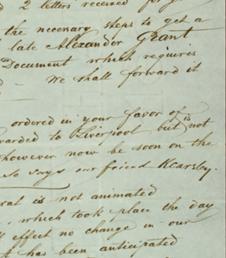 2 letters received
the necessary steps to get a
late Alexander Grant
Document which requires
We shall forward it
ordered in your favor of is
warded to Liverpool but not
however now be soon on the
So says our friend Kearsley.
rat is not animated
which took place the day
ll effect no change in our
t has been anticipated